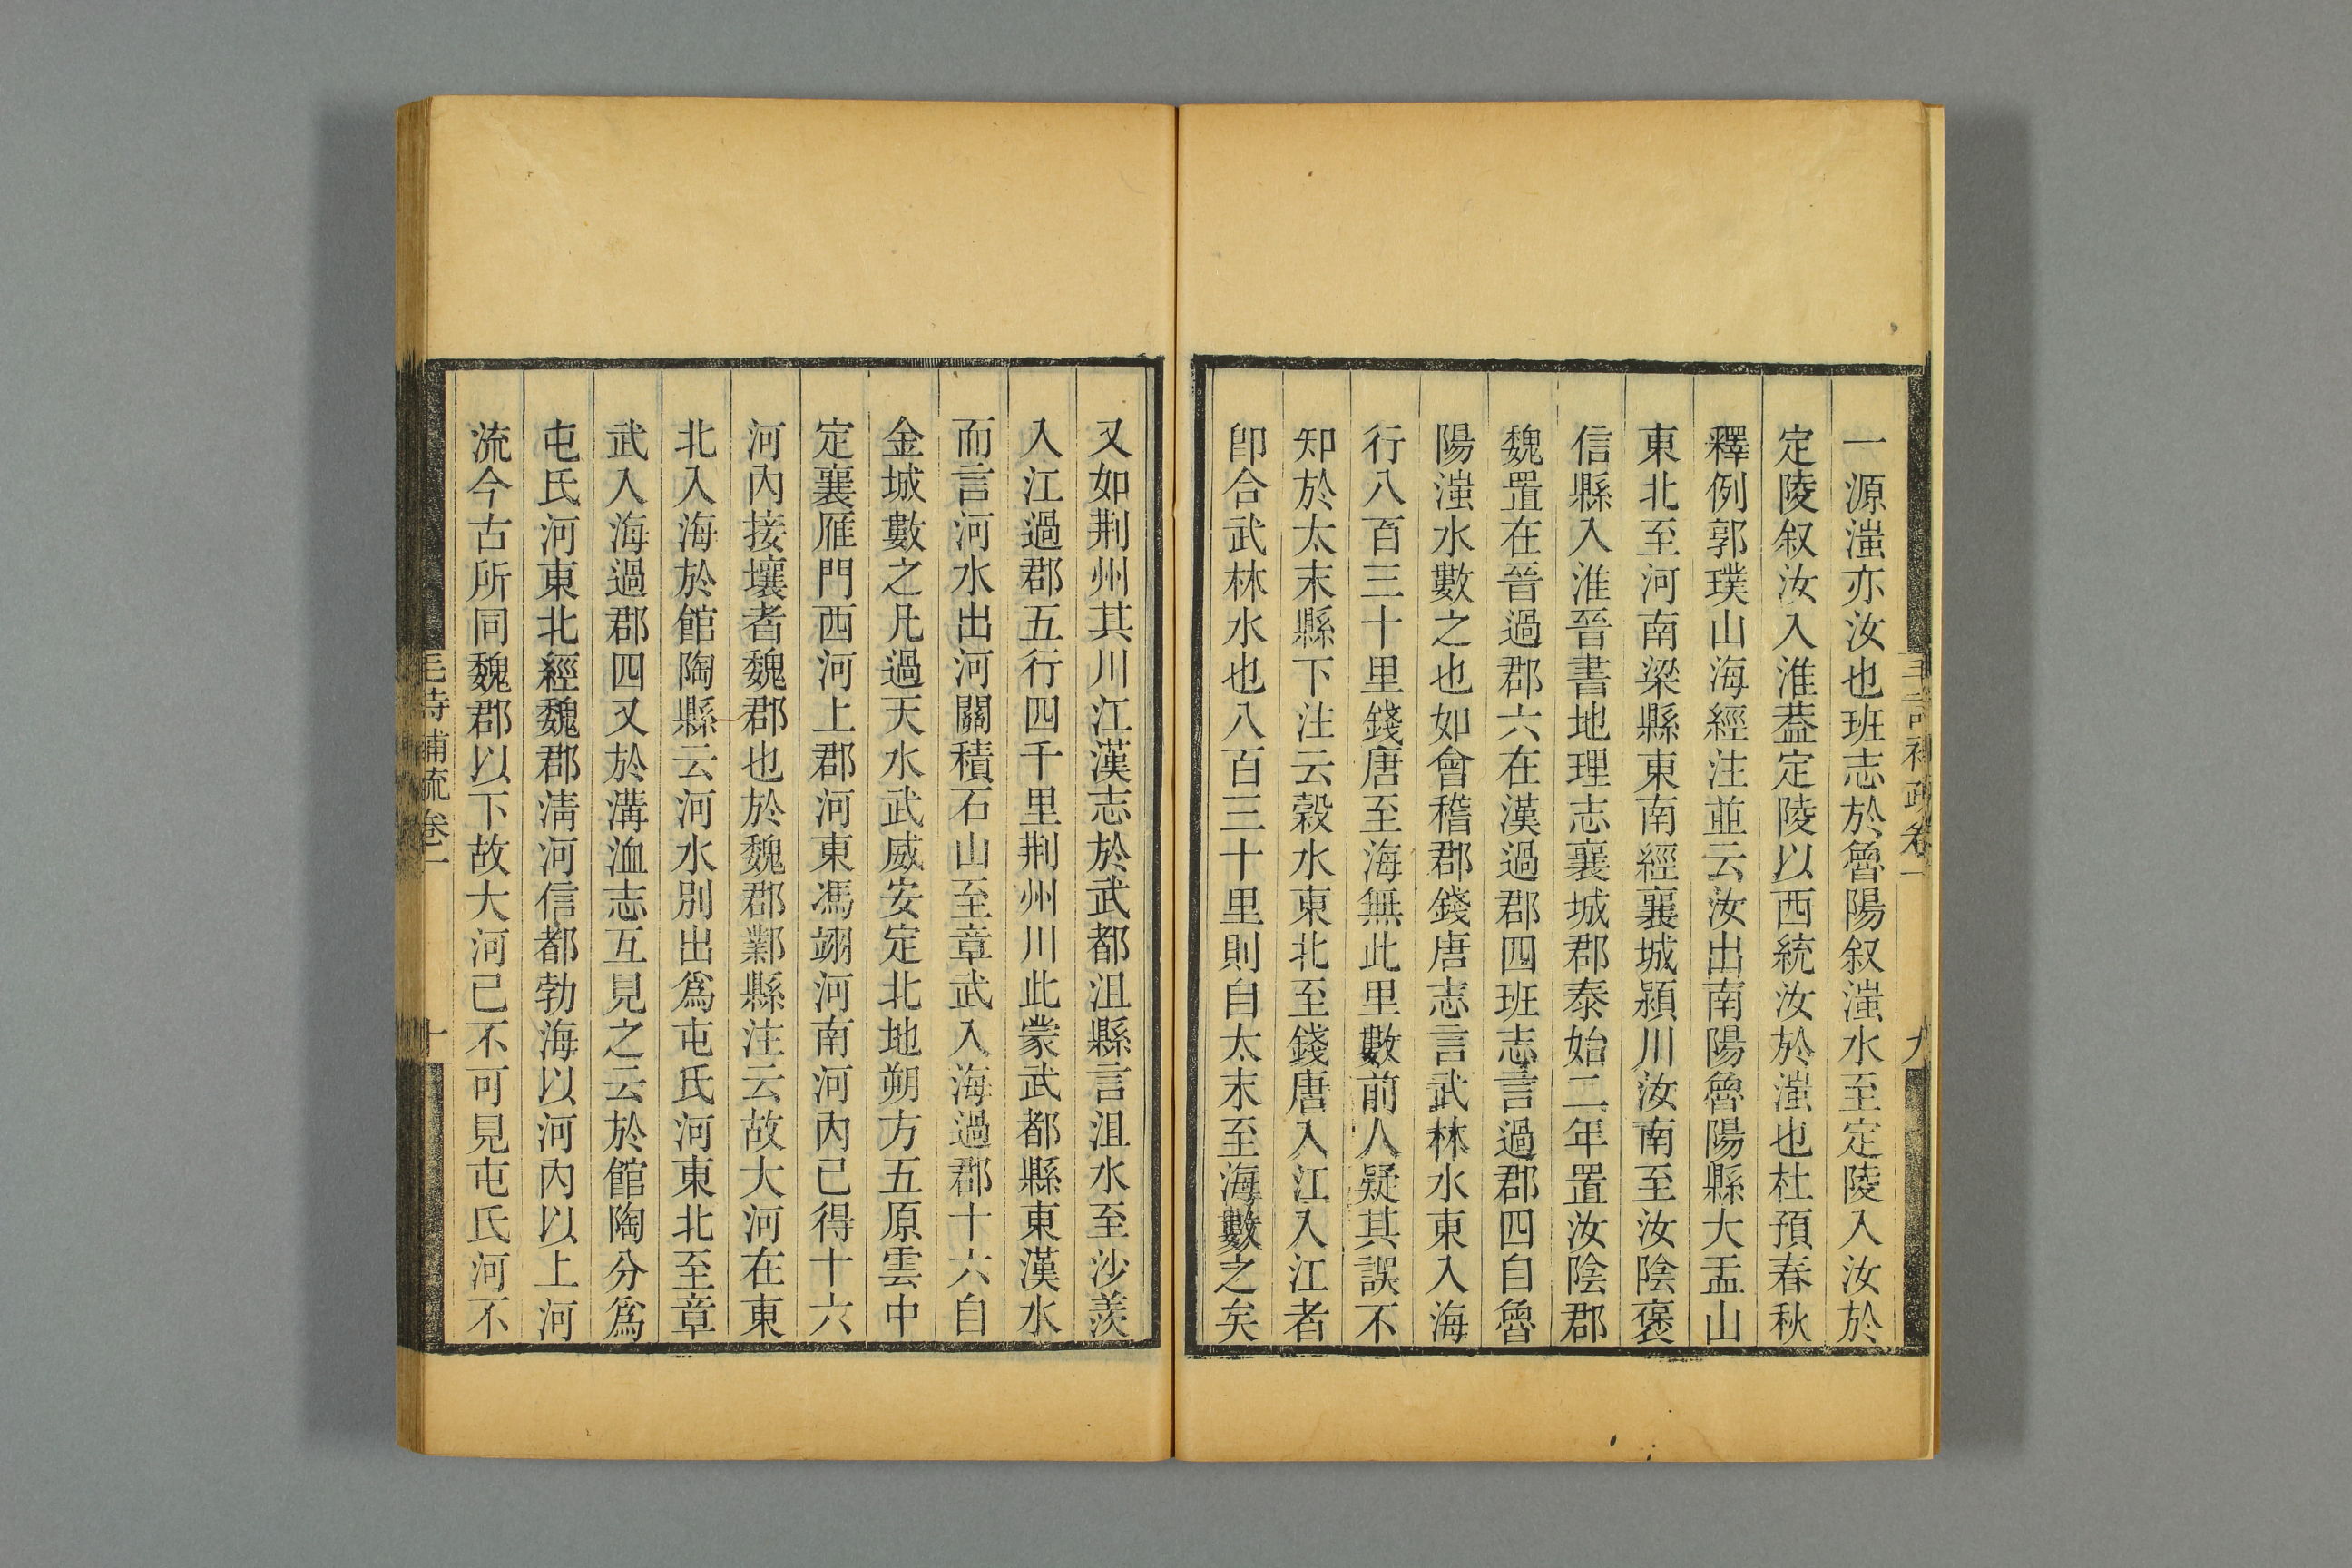 一源滍亦汝也班志於魯陽叙滍水至定陵入汝於
定陵叙汝入淮葢定陵以西統汝於滍也杜預春秋
釋例郭璞山海經注並云汝出南陽魯陽縣大盂山
東北至河南梁縣東南經襄城潁川汝南至汝陰褒
信縣入淮晉書地理志襄城郡泰始二年置汝陰郡
魏置在晉過郡六在漢過郡四班志言過郡四自魯
陽滍水數之也如會稽郡錢唐志言武林水東入海
行八百三十里錢唐至海無此里數前人疑其誤不
知於太末縣下注云穀水東北至錢唐入江入江者
卽合武林水也八百三十里則自太末至海數之矣
又如荆州其川江漢志於武都沮縣言沮水至沙羨
入江過郡五行四千里荆州川此蒙武都縣東漢水
而言河水出河關積石山至章武入海過郡十六自
金城數之凡過天水武威安定北地朔方五原雲中
定襄雁門西河上郡河東馮翊河南河內已得十六
河內接壤者魏郡也於魏郡鄴縣注云故大河在東
北入海於館陶縣云河水別出爲屯氏河東北至章
武入海過郡四又於溝洫志互見之云於館陶分爲
屯氏河東北經魏郡淸河信都勃海以河內以上河
流今古所同魏郡以下故大河已不可見屯氏河不
毛詩補疏卷一
十